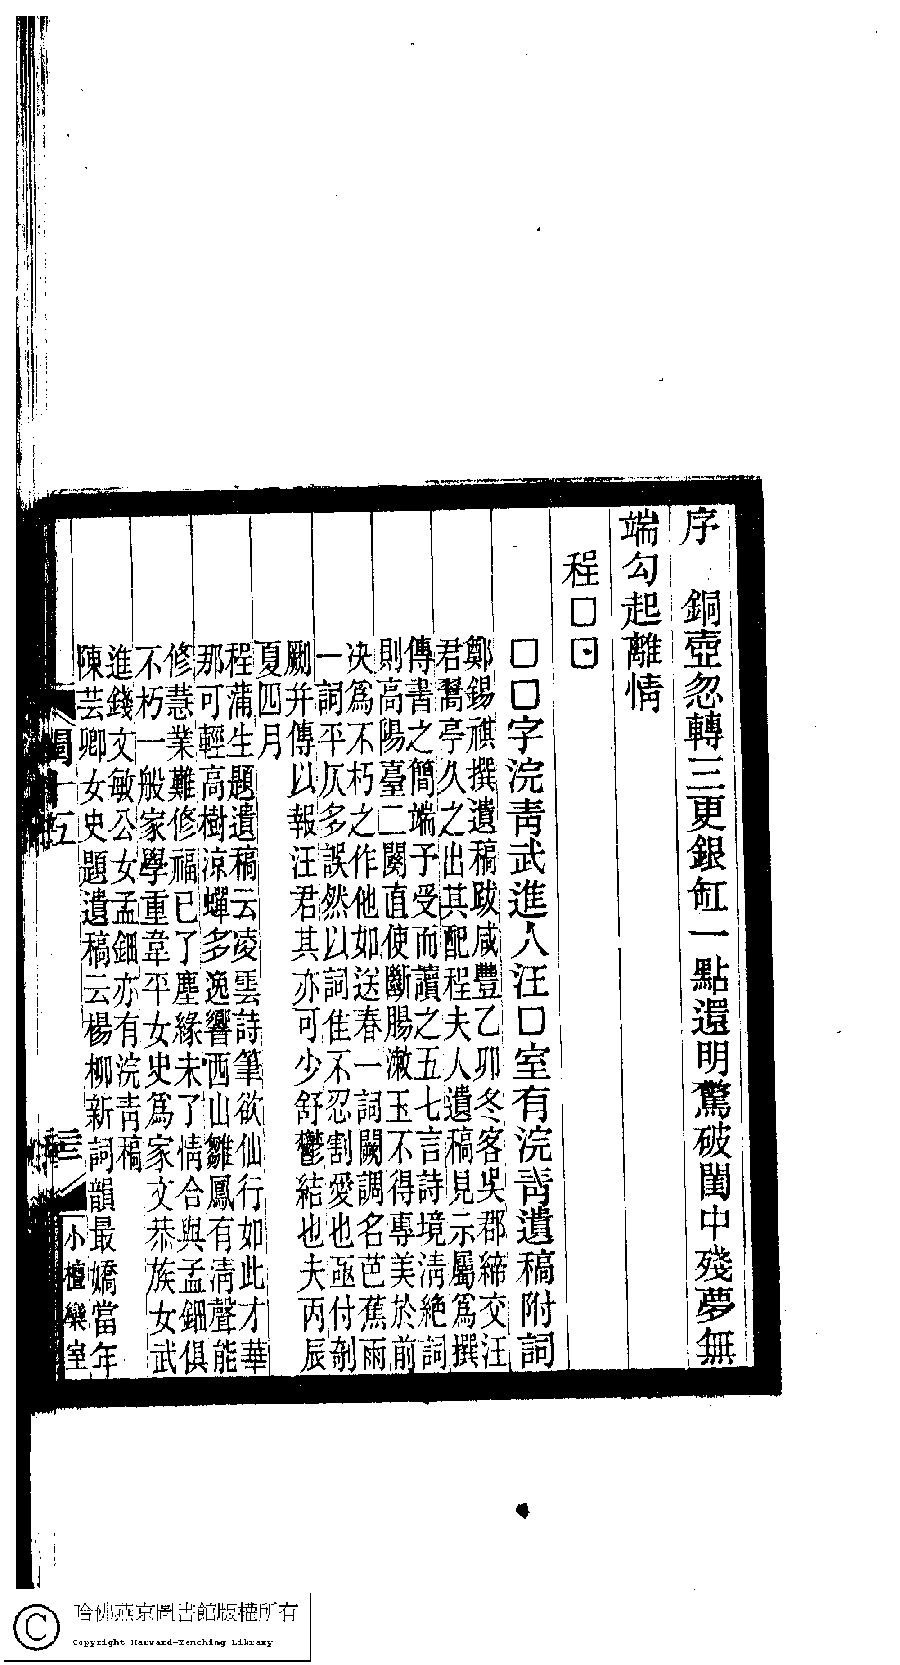 序　銅壺忽轉三更銀缸一點還明驚破閨中殘夢無
端勾起離情
程□□
□□字浣靑武進人汪□室有浣靑遺稿附詞
鄭錫祺撰遺稿跋咸豐乙卯冬客吳郡締交汪
君鷰亭久之出其配程夫人遺稿見示屬爲撰
傳書之簡端予受而讀之五七言詩境淸絶詞
則高陽臺二闋直使斷腸漱玉不得專美於前
决爲不朽之作他如送春一詞闕調名芭蕉雨
一詞平仄多誤然以詞佳不忍割愛也亟付剞
劂幷傳以報汪君其亦可少舒鬱結也夫丙辰
夏四月
程蒲生題遺稿云凌雲詩筆欲仙行如此才華
那可輕高樹涼蟬多逸響西山雛鳳有淸聲能
修慧業難修福已了塵緣未了情合與孟鈿俱
不朽一般家學重韋平女史爲家文恭族女武
進錢文敏公女孟鈿亦有浣靑稿
陳芸卿女史題遺稿云楊柳新詞韻最嬌當年
閨十五
三
小檀欒室
哈佛燕京圖書館版權所有
Copyright Harvard-Yenching Library